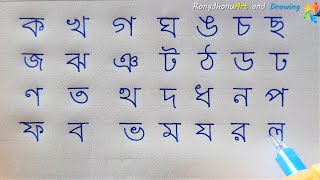 RongdhonuArt and Drawing
ক খ গ ঘ ঙ চ ছ
জ ঝ ঞ ট ঠ ড ঢ
ণ ত থ দ ধ ন প
ফ ব ভ ম য র ল